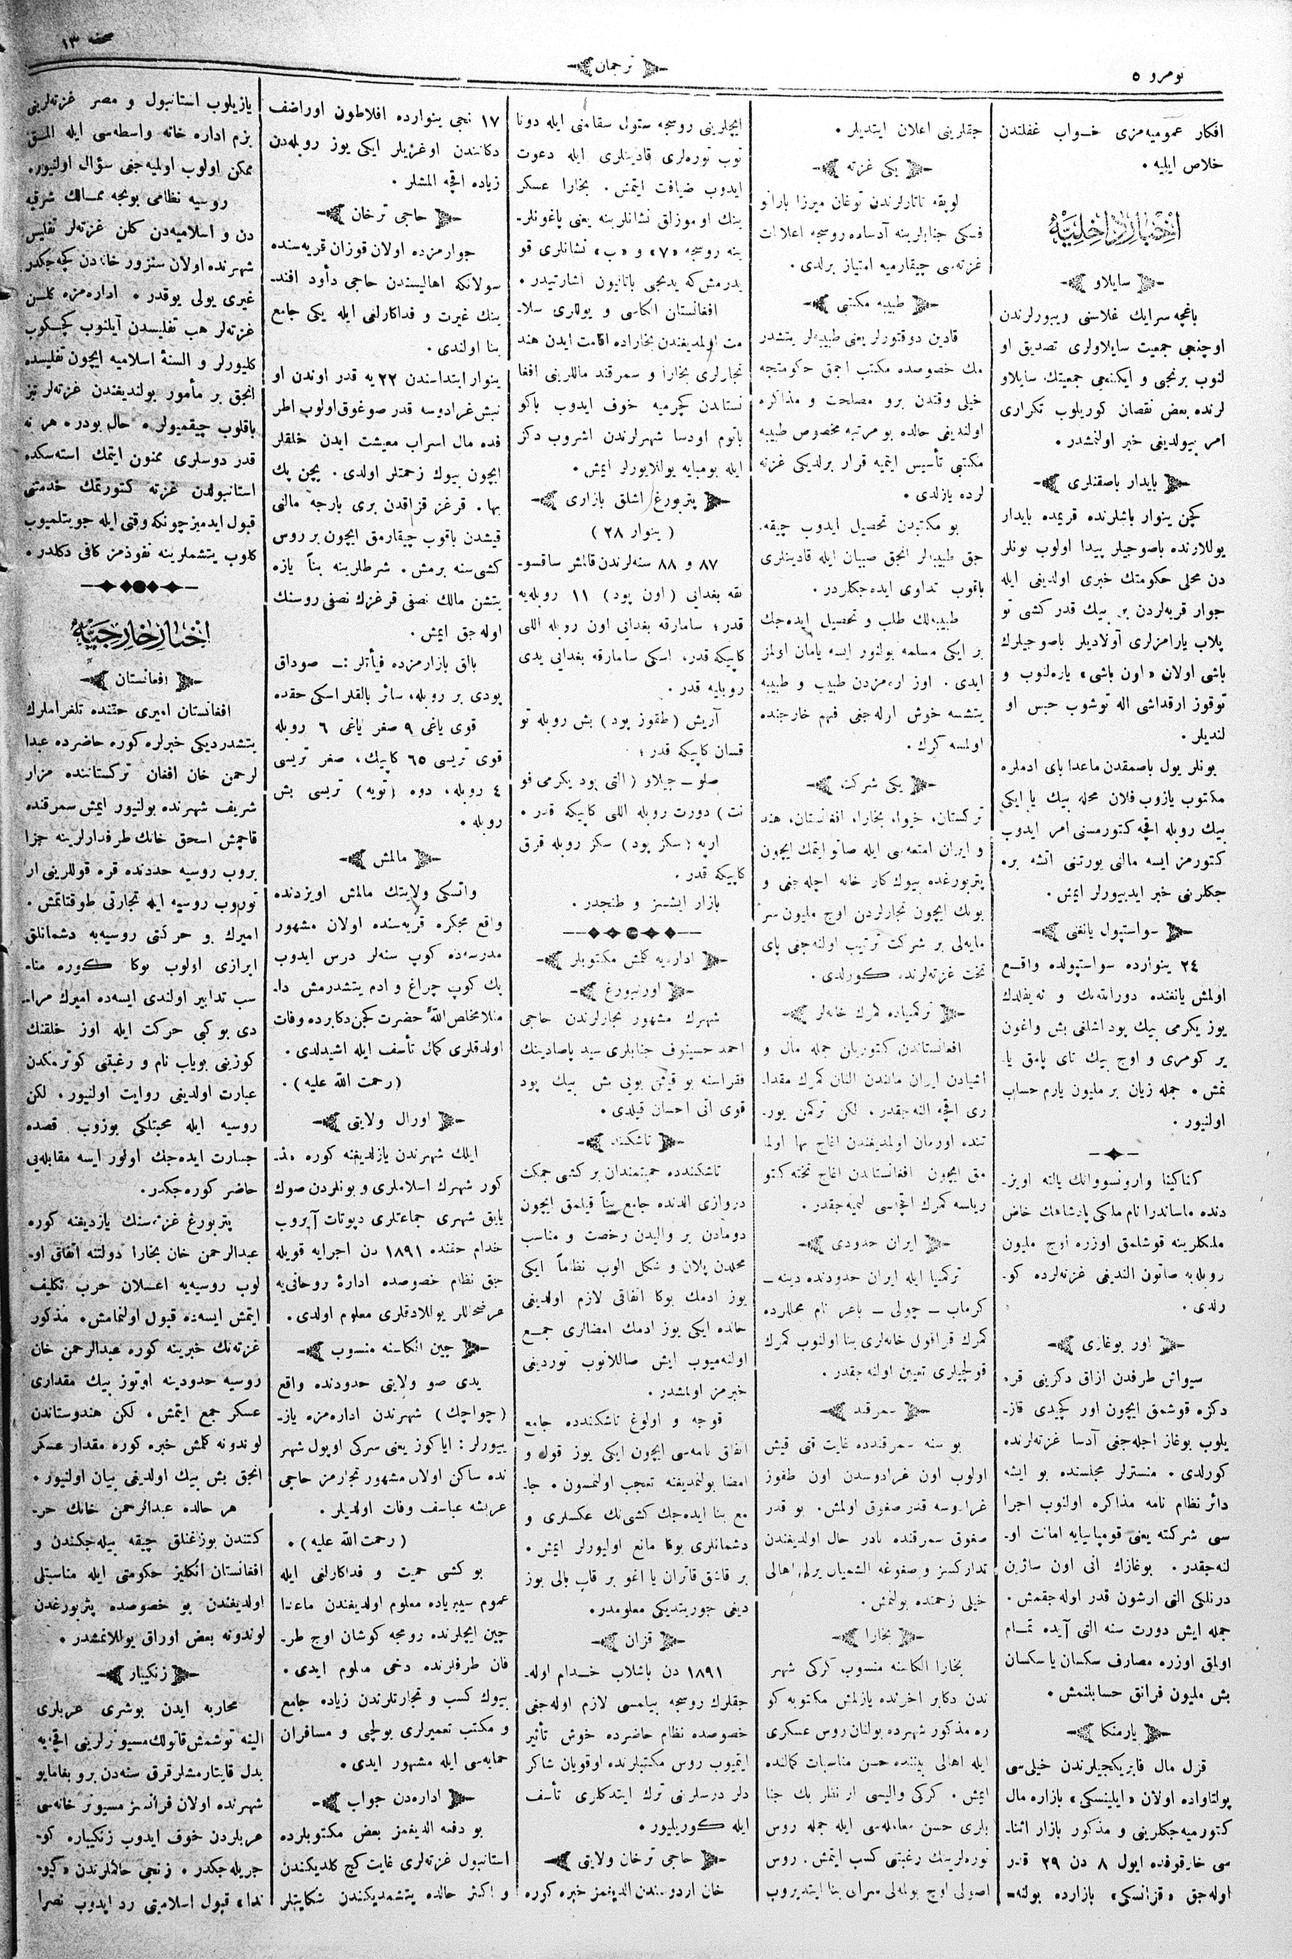 نومرو ٥
ترجمان
صحفه ١٣
افكار عموميه‌مزى خواب غفلتدن
خلاص ايليه.
اخبار داخليه
سايلاو
باغچه سرايك غلاسنى ويبورلرندن
اوچنجى جمعيت سايلاولرى تصديق او
لنوب برنجى و ايكنجى جمعيتك سايلاو
لرنده بعض نقصان كوريلوب تكرارى
امر بيولديغى خبر اولنمشدر.
بايدار باصقنلرى
كچن ينوار باشلرنده قريمده بايدار
يوللارنده باصوجيلر پيدا اولوب بونلر
دن محلى حكومتك خبرى اولديغى ايله
جوار قريه‌لردن بر بيك قدر كشى تو
پلاب يارامزلرى آولاديلر باصوجيلرك
باشى اولان «اون باشى» ياره‌لنوب و
توقوز ارقداشى اله توشوب حبس او
لنديلر.
بونلر يول باصمقدن ماعدا باى ادملره
مكتوب يازوب فلان محله بيك يا ايكى
بيك روبله اقچه كتورمسنى امر ايدوب
كتورمز ايسه مالنى يورتنى اتشه بره
جكلرنى خبر ايديبورلر ايمش.
سواستپول يانغنى
٢٤ ينوارده سواستپولده واقع
اولمش يانغنده
يوز يكرمى بيك پود اشلغى بش واغون
ير كومرى و اوج بيك تاى پامق يا
نمش. جمله زيان بر مليون يارم حساب
اولنيور.
كناكينا وارونسووانك يالته اويز
دنده ماساندرا نام ملكى پادشاهك خاص
ملكلرينه قوشلمق اوزره اوج مليون
روبله‌يه صاتون النديغى غزته‌لرده كو
رلدى.
اور بوغازى
سيواش طرفدن ازاق دكزينى قره
دكزه قوشمق ايچون اور كچيدى قاز
يلوب بوغاز اچله‌جغى آدسا غزته‌لرنده
كورلدى. منسترلر مجلسنده بو ايشه
دائر نظام نامه مذاكره اولنوب اجرا
سى شركته يعنى قومپانيايه امانت او
لنه‌جقدر. بوغازك انى اون سائين
درنلكى التى ارشون قدر اوله‌جقمش.
جمله ايش دورت سنه التى آيده تمام
اولمق اوزره مصارف سكسان يا سكسان
بش مليون فرانق حسابلنمش.
يارمنكا
قزل مال فابريكچيلرندن خيلى‌سى
پولتاواده اولان «ايلينسكى» بازاره مال
كتورميه‌جكلرينى و مذكور بازار اثنا
سى خارقوفده ايول ٨ دن ٢٩ قدر
اوله‌جق «قزانسكى» بازارده بولنه
جقلرينى اعلان ايتديلر.
يكى غزته
لوبقه تاتارلرندن توغان ميرزا بارانو
فسكى جنابلرينه آدساده روسجه اعلانات
غزته‌سى چيقارميه امتياز برلدى.
طبيبه مكتبى
قادين دوقتورلر يعنى طبيبه‌لر يتشدر
مك خصوصده مكتب اچمق حكومتجه
خيلى وقتدن برو مصلحت و مذاكره
اولنديغى حالده بو مرتبه مخصوص طبيبه
مكتبى تأسيس ايتميه قرار برلديكى غزته
لرده يازلدى.
بو مكتبدن تحصيل ايدوب چيقه
جق طبيبه‌لر انجق صبيان ايله قادينلرى
باقوب تداوى ايده‌جكلردر.
طبيبه‌لك طلب و تحصيل ايده‌جك
بر ايكى مسلمه بولنور ايسه يامان اولمز
ايدى. اوز ارامزدن طبيب و طبيبه
يتشسه خوش اوله‌جغى فهم خارجنده
اولمسه كرك.
يكى شركت
تركستان، خيوا، بخارا، افغانستان، هند
و ايران امتعه‌سى ايله صاتو ايتمك ايچون
پتربورغده بيوك كار خانه اچله‌جغى و
بونك ايچون تجارلردن اوج مليون سر
مايه‌لى بر شركت ترتيب اولنه‌جغى پاى
تخت غزته‌لرنده كورلدى.
تركمياده كمرك خانه‌لر
افغانستاندن كتوريلان جمله مال و
اشيادن ايران مالندن النان كمرك مقدا
رى اقچه النه‌جقدر. لكن تركمن يور
تنده اورمان اولمديغندن اغاج بها اولما
مق ايچون افغانستاندن اغاج تخته كتو
ريلسه كمرك اقچه‌سى لنميه‌جقدر.
ايران حدودى
تركميا ايله ايران حدودنده دينه
كرماب ـ چولى ـ باعر نام محللرده
كمرك قراقول خانه‌لرى بنا اولنوب كمرك
قولجيلرى تعيين اولنه‌جقدر.
سمرقند
بو سنه سمرقندده غايت قتى قيش
اولوب اون غرادوسدن اون طقوز
غرادوسه قدر صغوق اولمش. بو قدر
صغوق سمرقنده نادر حال اولديغندن
تداركسز و صغوغه الشميان يرلى اهالى
خيلى زحمتده بولنمش.
بخارا
بخارا الكاسنه منسوب كركى شهر
ندن دكابر اخرنده يازلمش مكتوبه كو
ره مذكور شهرده بولنان روس عسكرى
ايله اهالى بيننده حسن مناسبات كمالنده
ايمش. كركى واليسى ار نظر بك جنا
بلرى حسن معامله‌سى ايله جمله روس
توره‌لرينك رغبتنى كسب ايتمش. روس
اصولى اوج بولمه‌لى سراى بنا ايتديروب
ايچلرينى روسجه ستول سقامنى ايله دونا
توب توره‌لرى قادينلرى ايله دعوت
ايدوب ضيافت ايتمش. بخارا عسكر
ينك اوموزلق نشانلرينه يعنى پاغونلر
ينه روسجه «٧» و «ب» نشانلرى قو
يدرمش‌كه يدنجى باتاليون اشارتيدر.
افغانستان الكاسى و يوللرى سلا
مت اولمديغندن بخاراده اقامت ايدن هند
تجارلرى بخارا و سمرقند ماللرينى افغا
نستاندن كچرميه خوف ايدوب باكو
باتوم اودسا شهرلرندن اشروب دكز
ايله بومبايه يوللايورلر ايمش.
پتربورغ اشلق بازارى
(ينوار ٢٨)
٨٧ و ٨٨ سنه‌لرندن قالمش ساقسو
نقه بغدايى (اون پود) ١١ روبله‌يه
قدر؛ سامارقه بغدايى اون روبله اللى
كاپيكه قدر، اسكى سامارقه بغدايى يدى
روبليه قدر.
آريش (طقوز پود) بش روبله تو
قسان كاپيكه قدر؛
صلو ـ جيلاو (التى پود يكرمى فو
نت) دورت روبله اللى كاپيكه قدر.
ارپه (سكز پود) سكز روبله قرق
كاپيكه قدر.
بازار ايشسز و طنجدر.
اداره‌يه كلمش مكتوبلر
اورنبورغ
شهرك مشهور تجارلرندن حاجى
احمد حسينوف جنابلرى سيد پاصادينك
فقراسنه بو قيش بونى بش بيك پود
قوى اتى احسان قيلدى.
تاشكند
تاشكندده حميتمندان بر كشى جمكت
دروازى الدنده جامع بيناً قيلمق ايچون
دومادن بر واليدن رخصت و مناسب
محلدن پلان و شكل الوب نظاماً ايكى
يوز ادمك بوكا اتفاقى لازم اولديغى
حالده ايكى يوز ادمك امضالرى جمع
اولنه‌ميوب ايش صاللانوب تورديغى
خبرمز اولمشدر.
قوجه و اولوغ تاشكندده جامع
اتفاق نامه‌سى ايچون ايكى يوز قول و
امضا بولنمديغنه تعجب اولنمسون. جا
مع بنا ايده‌جك كشى‌نك عكسلرى و
دشمانلرى بوكا مانع اوليورلر ايمش.
بر قاشق قاتران يا اغو بر قاپ بالى بوز
ديغى جوريتديكى معلومدر.
قزان
١٨٩١ دن باشلاب خدام اوله
جقلرك روسجه بيلمسى لازم اوله‌جغى
خصوصده نظام حاضرده خوش تأثير
ايتميوب روس مكتبلرنده اوقويان شاكر
دلر درسلرنى ترك ايتدكلرى تأسف
ايله كوريليور.
حاجى ترخان ولايتى
خان اردوسندن الديغمز خبره كوره
١٧ نجى ينوارده افلاطون اوراضف
دكانندن اوغريلر ايكى يوز روبله‌دن
زياده اقچه المشلر.
حاجى ترخان
جوارمزده اولان قوزان قريه‌سنده
سولانكه اهاليسندن حاجى دأود افند
ينك غيرت و فداكارلغى ايله يكى جامع
بنا اولندى.
ينوار ابتداسندن ٢٢ يه قدر اوندن او
تبش غرادوسه قدر صوغوق اولوب اطر
فده مال اسراب معيشت ايدن خلقلر
ايچون بيوك زحمتلر اولدى. يچن پك
بها. قرغز قزاقدن برى پارچه مالنى
قيشدن باقوب چيقارمق ايچون بر روس
كشى‌سنه برمش. شرطلرينه بناً يازه
يتشن مالك نصفى قرغزك نصفى روسنك
اوله‌جق ايمش.
بالق بازارمزده فيأتلر:ـ صوداق
پودى بر روبله، سائر بالقلر اسكى حقده
قوى ياغى ٩ صغر ياغى ٦ روبله
قوى تريسى ٦٥ كاپيك، صغر تريسى
٤ روبله، دوه (تويه) تريسى بش
روبله.
مالمش
واتسكى ولايتك مالمش اويزدنده
واقع مچكره قريه‌سنده اولان مشهور
مدرسه‌ده كوپ سنه‌لر درس ايدوب
پك كوپ چراغ و ادم يتشدرمش دا
مللا مخلص اللّه حضرت كچن دكابرده وفات
اولدقلرى كمال تأسف ايله اشيدلدى.
(رحمت اللّه عليه).
اورال ولايتى
ايلك شهرندن يازلديغنه كوره مذ
كور شهرك اسلاملرى و بونلردن صوك
يايق شهرى جماعتلرى ديپوتات آپروب
خدام حقنده ١٨٩١ دن اجرايه قويله
جق نظام خصوصده ادارهٔ روحانيه
عرضحاللر يوللادقلرى معلوم اولدى.
چين الكاسنه منسوب
يدى صو ولايتى حدودنده واقع
(چواچك) شهرندن اداره‌مزه ياز
ييورلر: اياكوز يعنى سركى اوپول شهر
نده ساكن اولان مشهور تجارمز حاجى
عريشه عباسف وفات اولديلر.
(رحمت اللّه عليه).
بو كشى حميت و فداكارلغى ايله
عموم سيبرياده معلوم اولديغندن ماعدا
چين ايچلرنده روميه كوشان اوج طر
فان طرفلرنده دخى معلوم ايدى.
بيوك كسب و تجارتلرندن زياده جامع
و مكتب تعميرلرى بولچى و مسافران
حمايه‌سى ايله مشهور ايدى.
اداره‌دن جواب
بو دفعه الديغمز بعض مكتوبلرده
استانبول غزته‌لرى غايت كيج كلديكندن
و اكثر حالده يتشمديكندن شكايتلر
يازيلوب استانبول و مصر غزته‌لرينى
بزم اداره خانه واسطه‌سى ايله المق
ممكن اولوب اولميه‌جغى سؤال اولنيور.
روسيه نظامى بونجه ممالك شرقيه
دن و اسلاميه‌دن كلن غزته‌لر تفليس
شهرنده اولان سنزور خانه‌دن كچه‌جكدر
غيرى يولى يوقدر. اداره‌مزه كلن
غزته‌لر هب تفليسدن آيلنوب كچكوب
كليورلر و السنهٔ اسلاميه ايچون تفليسده
انجق بر مأمور بولنديغندن غزته‌لر تيز
باقلوب چيقميورلر. حال بودر. هر نه
قدر دوسلرى ممنون ايتمك استه‌سكده
استانبولدن غزته كتورتمك خدمتنى
قبول ايدمز چونكه وقتى ايله جويتلميوب
كلوب يتشملرينه نفوذمز كافى دكلدر.
اخبار خارجيه
افغانستان
افغانستان اميرى حقنده تلغراملرك
يتشدرديكى خبرلره كوره حاضرده عبدا
لرحمن خان افغان تركستاننده مزار
شريف شهرنده بولنيور ايمش سمرقنده
قاچمش اسحق خانك طرفدارلرينه جزا
بروب روسيه حددنده قره قوللرينى ار
توروب روسيه ايله تجارتى طوقتاتمش.
اميرك بو حركتى روسيه‌يه دشمانلق
ابرازى اولوب بوكا كوره منا
سب تدابير اولندى ايسه‌ده اميرك مرا
دى بو كبى حركت ايله اوز خلقنك
كوزينى بوياب نام و رغبتنى كوترمكدن
عبارت اولديغى روايت اولنيور. لكن
روسيه ايله محبتلكى بوزوب قصده
جسارت ايده‌جك اولور ايسه مقابله‌يى
حاضر كوره‌جكدر.
پتربورغ غزته‌سنك يازديغنه كوره
عبدالرحمن خان بخارا دولتنه اتفاق او
لوب روسيه‌يه اعلان حرب تكليف
ايتمش ايسه‌ده قبول اولنمامش. مذكور
غزته‌نك خبرينه كوره عبدالرحمن خان
روسيه حدودينه اوتوز بيك مقدارى
عسكر جمع ايتمش. لكن هندوستاندن
لوندونه كلمش خبره كوره مقدار عسكر
انجق بش بيك اولديغى بيان اولنيور.
هر حالده عبدالرحمن خانك حر
كتندن بوزغنلق چيقه بيله‌جكندن و
افغانستان انكليز حكومتى ايله مناسبتلى
اولديغندن بو خصوصده پتربورغدن
لوندونه بعض اوراق يوللانمشدر.
زنكيبار
محاربه ايدن بوشرى عربلرى
الينه توشمش قاتولك مسيونرلرينى اقچه‌يه
بدل قايتارمشلر قرق سنه‌دن برو بغامايو
شهرنده اولان فرانسز مسيونر خانه‌سى
عربلردن خوف ايدوب زنكيباره كو
چريله‌جكدر. زنجى حاكملرندن «كيو
ندا» قبول اسلاميتى رد ايدوب نصرا